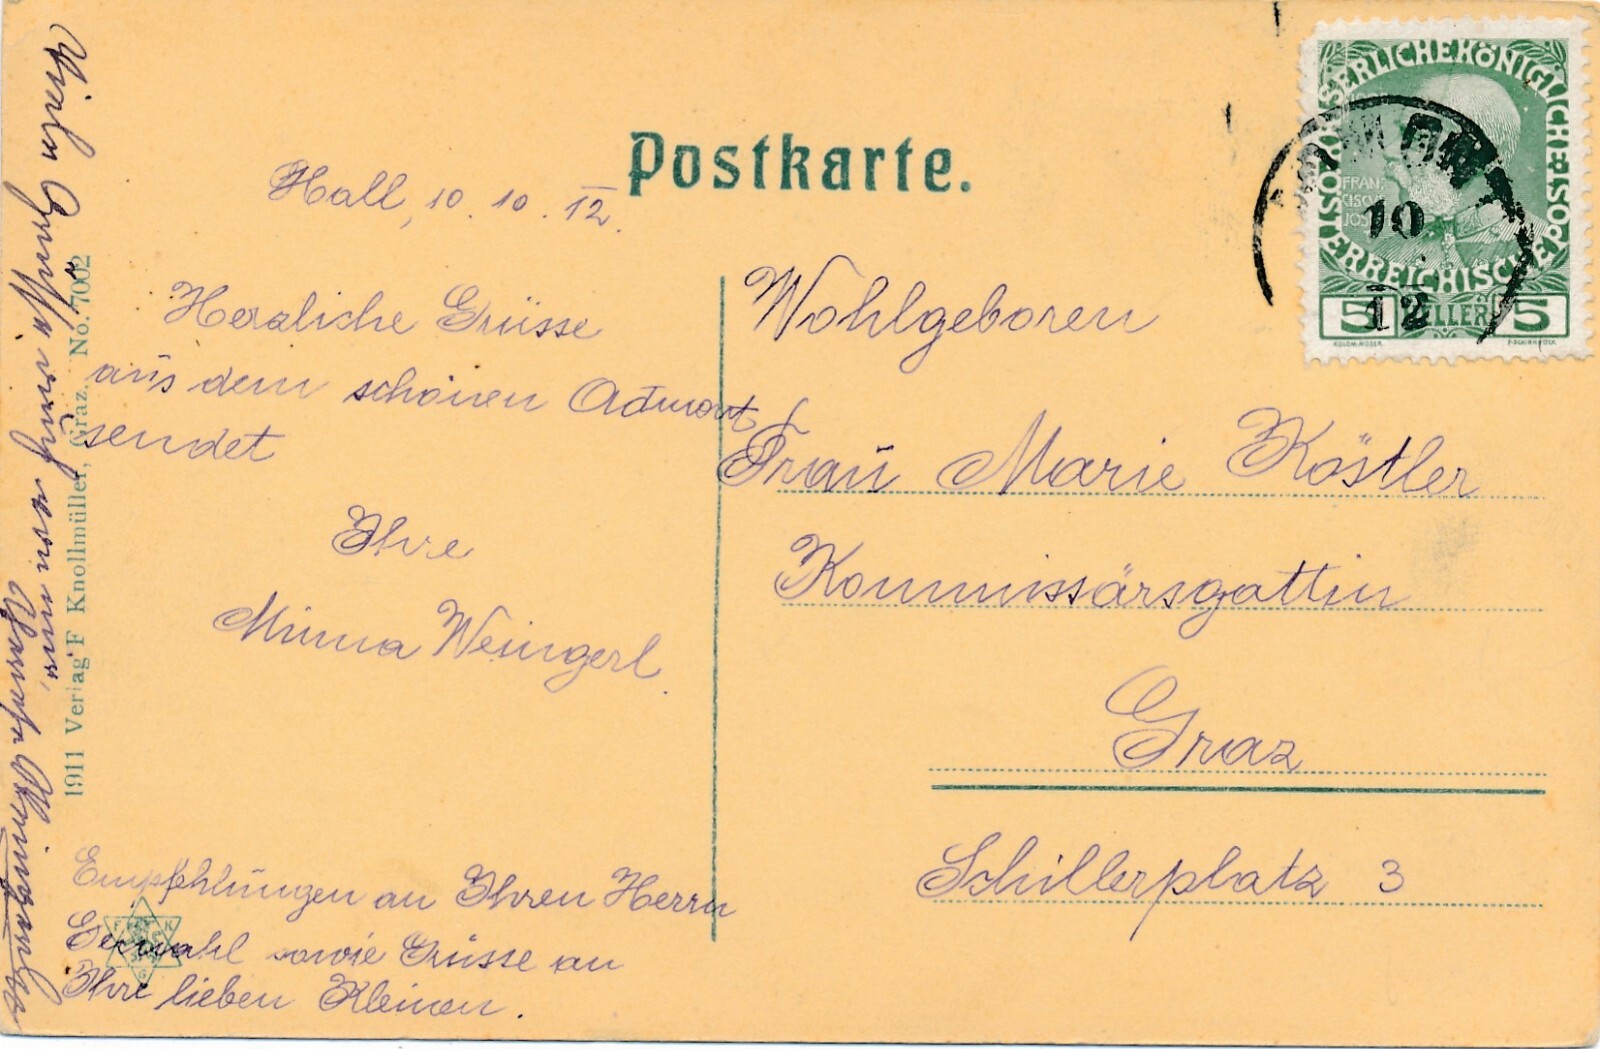 Postkarte.
Hall, 10. 10. 12.
Herzliche Grüsse
aus dem schönen Admont
sendet
Ihre
Minna Weingerl.
Empfehlungen an Ihren Herrn
Gemahl sowie Grüsse an
Ihre lieben Kleinen.
Wohlgeboren
Frau Marie Köstler
Kommissärsgattin
Graz
Schillerplatz 3
1911 Verlag F Knollmüller, Graz. No. 7002
von mir,
KAISERLICHE KÖNIGLICHE
ÖSTERREICHISCHE POST
FRAN
CISCVS
JOS
5 HELLER 5
10
12